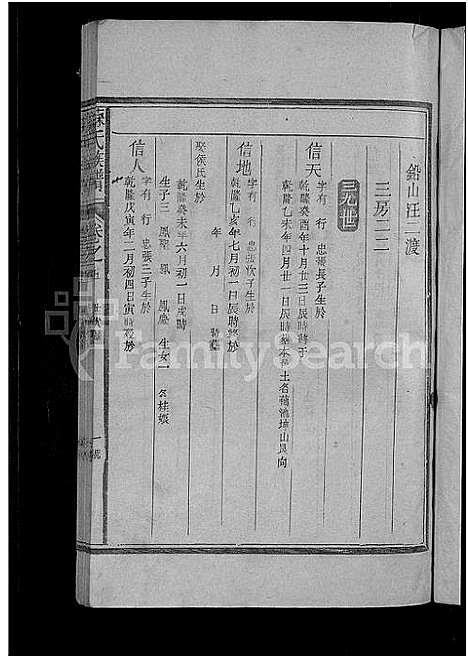 鉛山汪二渡
三房二二
三九世
信天
字有 行 忠張長子生於
乾隆癸酉年十月廿三日辰時終于
乾隆乙未年四月廿一日辰時葬本 土名 山艮向
信地
字有 行 忠張次子生於
乾隆乙亥年七月初一日辰時終於
年 月 日 時葬
娶侯氏生於
乾隆癸未年六月初一日戌時
生子三 鳳 鳳 鳳慶 生女一 名桂嬌
信人
字有 行 忠張三子生於
乾隆戊寅年二月初四日寅時終於
氏族譜
卷之一
FamilySearch